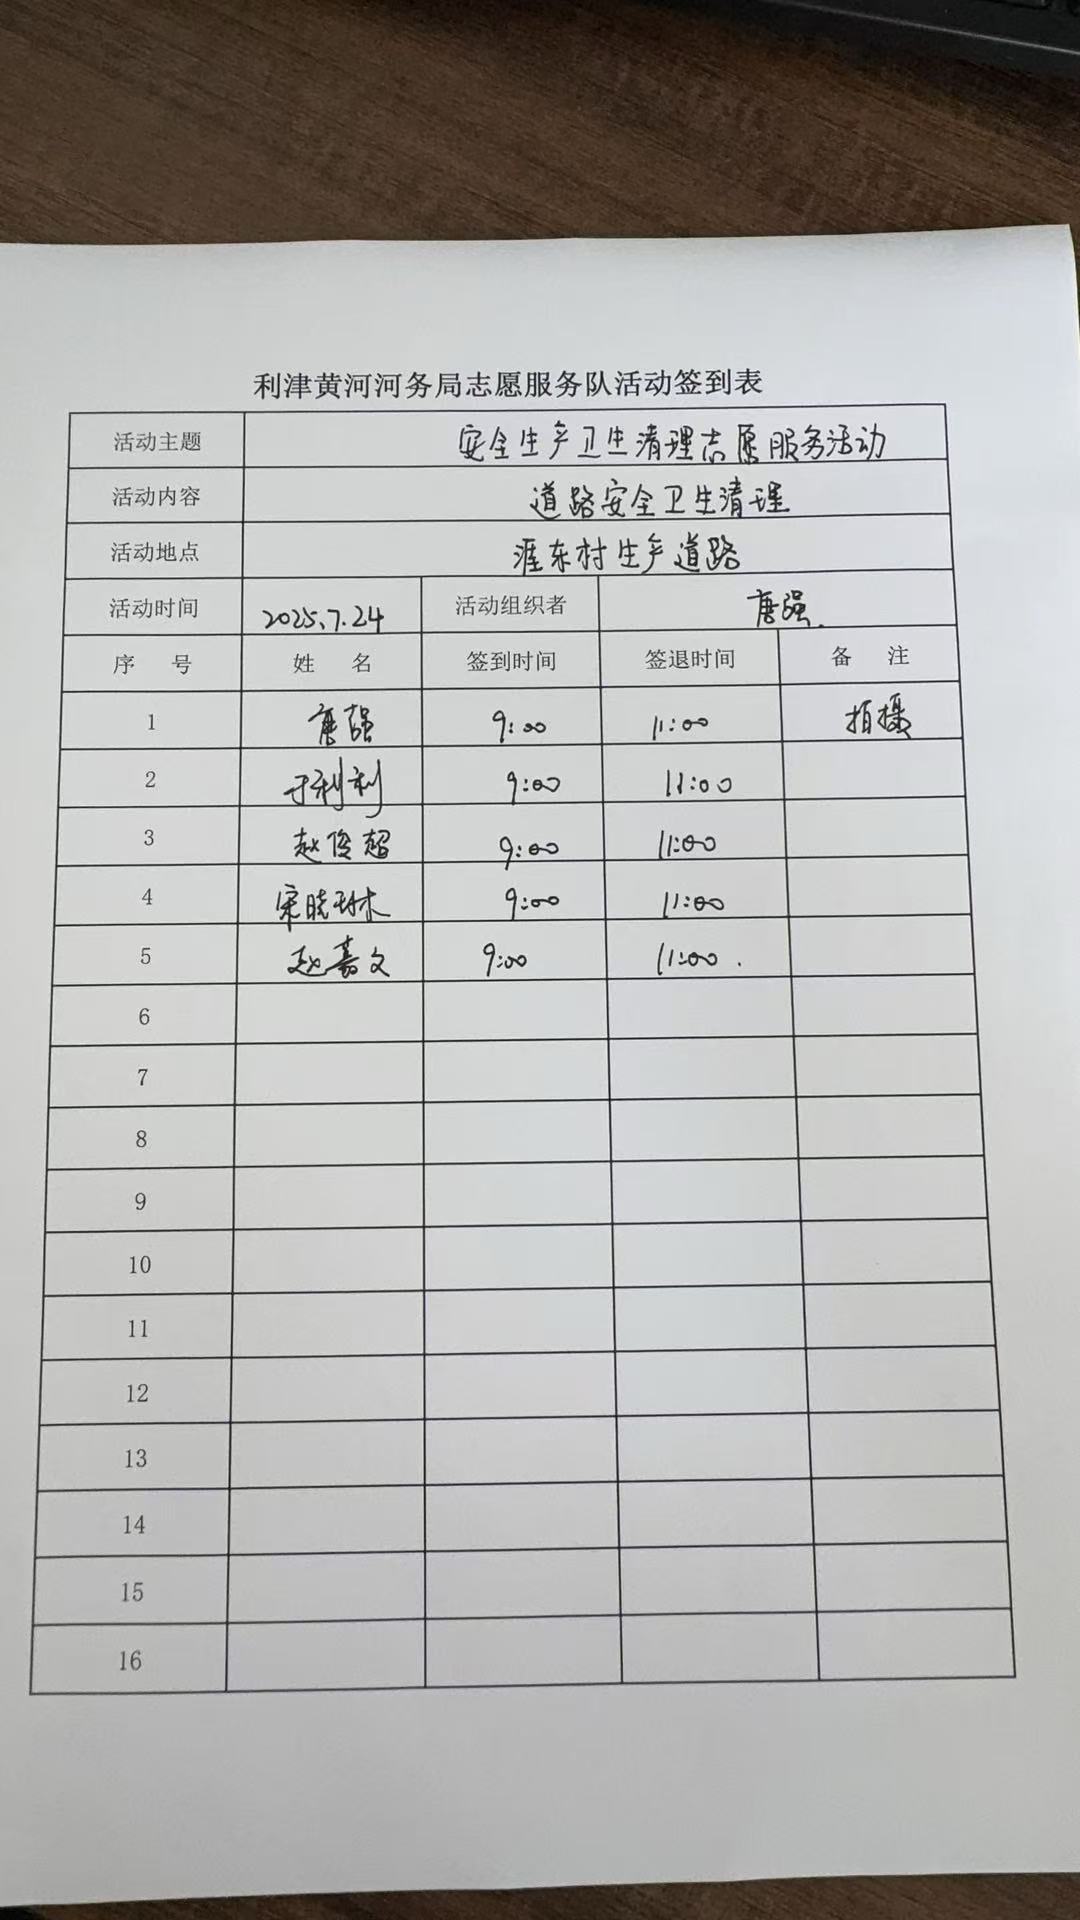 利津黄河河务局志愿服务队活动签到表
活动主题 安全生产卫生清理志愿服务活动
活动内容 道路安全卫生清理
活动地点 崖东村生产道路
活动时间 2025.7.24 活动组织者 唐强
序号 姓名 签到时间 签退时间 备注
1 唐强 9:00 11:00 拍摄
2 于利利 9:00 11:00
3 赵俊超 9:00 11:00
4 宋晓琳 9:00 11:00
5 赵嘉文 9:00 11:00
6
7
8
9
10
11
12
13
14
15
16